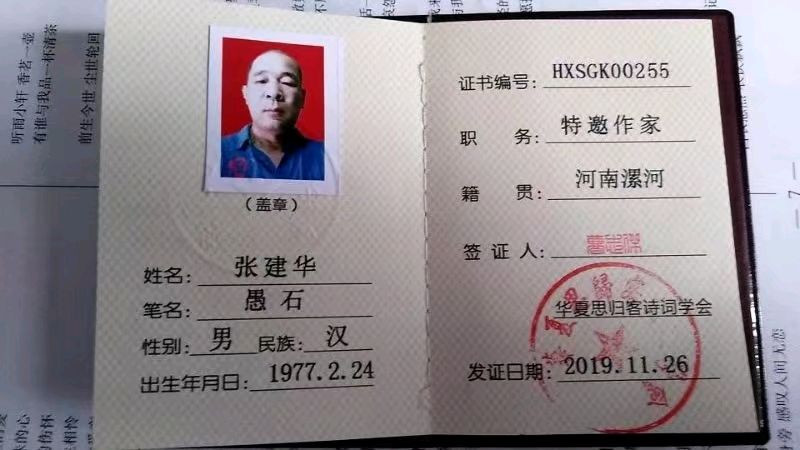 听雨小轩 香茗一壶
有谁与我品一杯清茶
前生今世 尘世轮回
(盖章)
姓名: 张建华
笔名: 愚石
性别: 男 民族: 汉
出生年月日: 1977.2.24
证书编号: HXSGK00255
职 务: 特邀作家
籍 贯: 河南漯河
签 证 人:
华夏思归客诗词学会
发证日期: 2019.11.26
— 7 —
感叹人间无恋